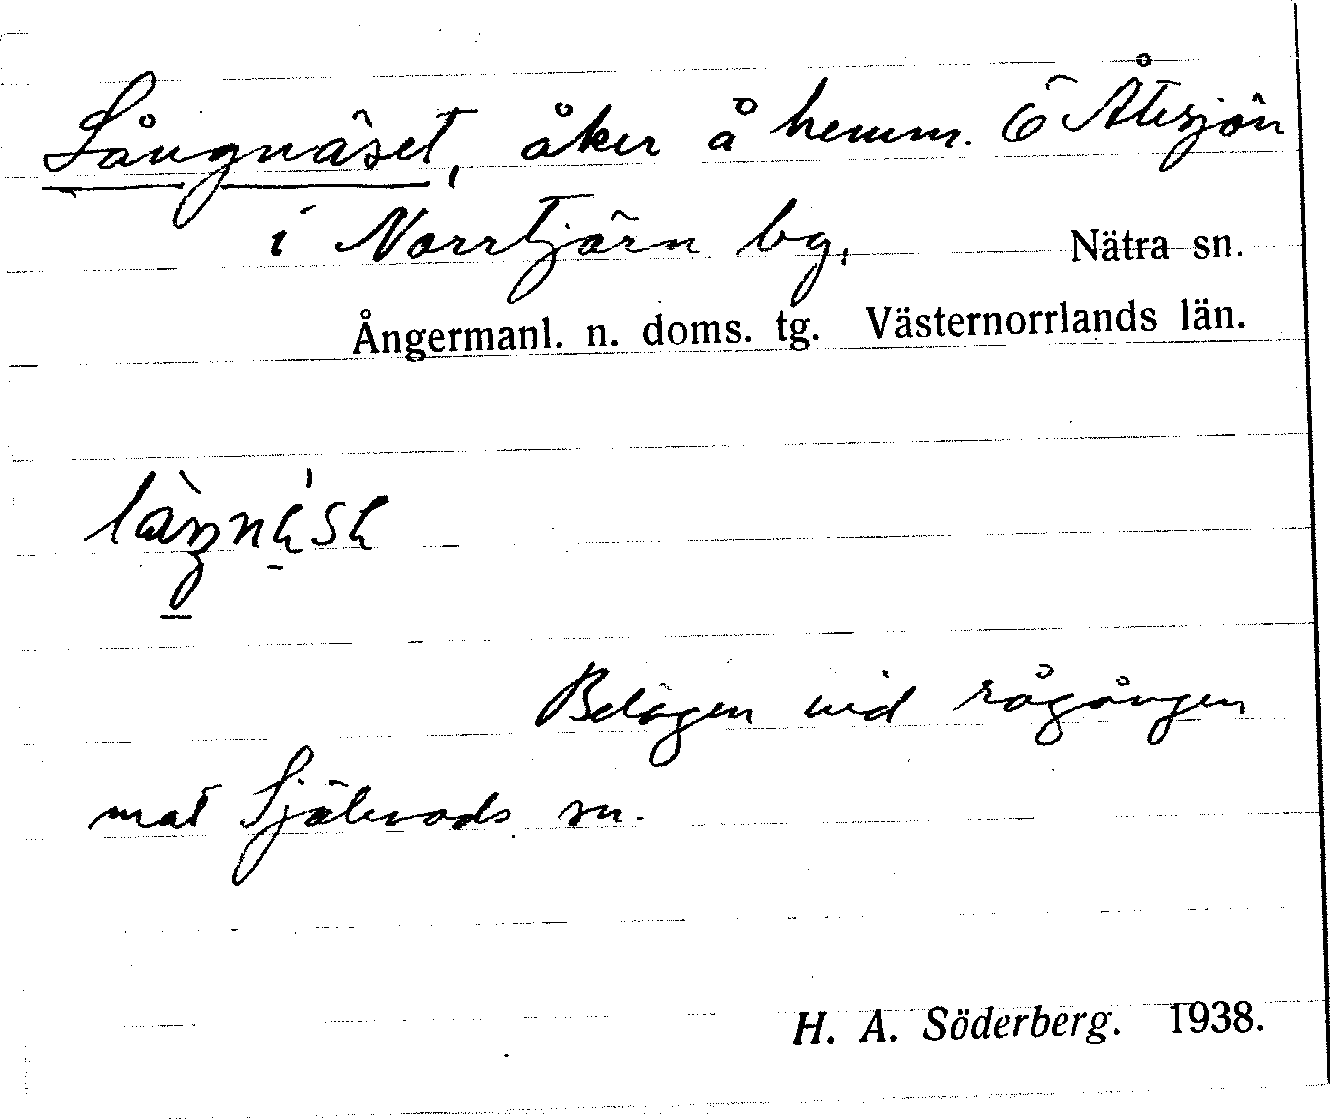 Långnäset, åker å hemm. Ö Åtesjön
i Norrtjärn bg,
Nätra sn.
Ångermanl. n. doms. tg. Västernorrlands län.
Belägen vid rågången
mot Själevads sn.
H. A. Söderberg. 1938.